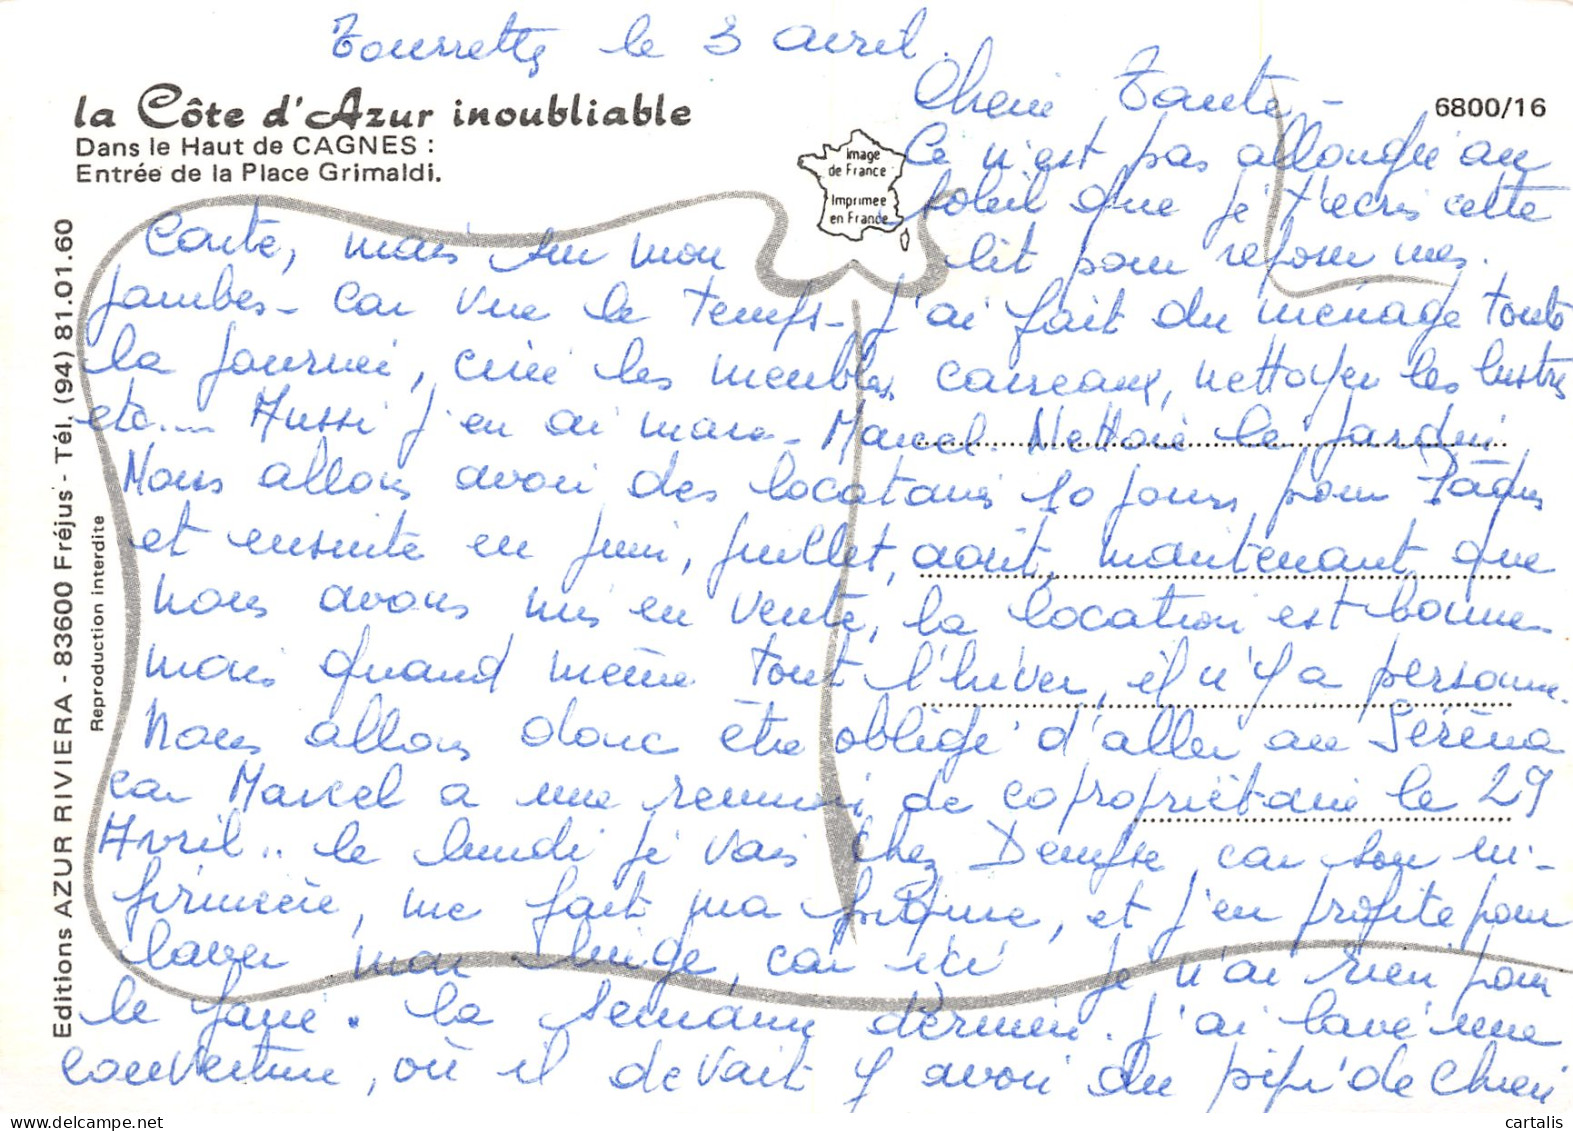 Tourrette le 3 avril.
la Côte d'Azur inoubliable
Dans le Haut de CAGNES :
Entrée de la Place Grimaldi.
6800/16
Image
de France
Imprimée
en France
Editions AZUR RIVIERA - 83600 Fréjus - Tél. (94) 81.01.60
Reproduction interdite
Cherie Tante -
Ce n'est pas allongée au
soleil que je t'ecris cette
Carte, mais sur mon lit pour reposer mes
jambes - Car vue le temps - J'ai fait du ménage toute
la journeé, ciré les meubles, carreaux, nettoyer les lustres
etc.... Aussi j'en ai marre - Marcel Nettoie le jardin
Nous allons avoir des locataires 10 jours pour Pâques
et ensuite en juin, juillet, août, maintenant que
nous avons mis en vente, la location est bonne
mais quand même tout l'hiver, il n'y a personne.
Nous allons donc être obligé d'aller au Seréna
car Marcel a une reunion de copropriétaire le 29
Avril.. le lundi je vais chez Denyse car son in-
firmière, me fait ma piqure, et j'en profite pour
laver mon linge, car ici je n'ai rien pour
le faire. la semaine dernière. J'ai lavé une
couverture, où il devait y avoir du pipi de chien
cartalis